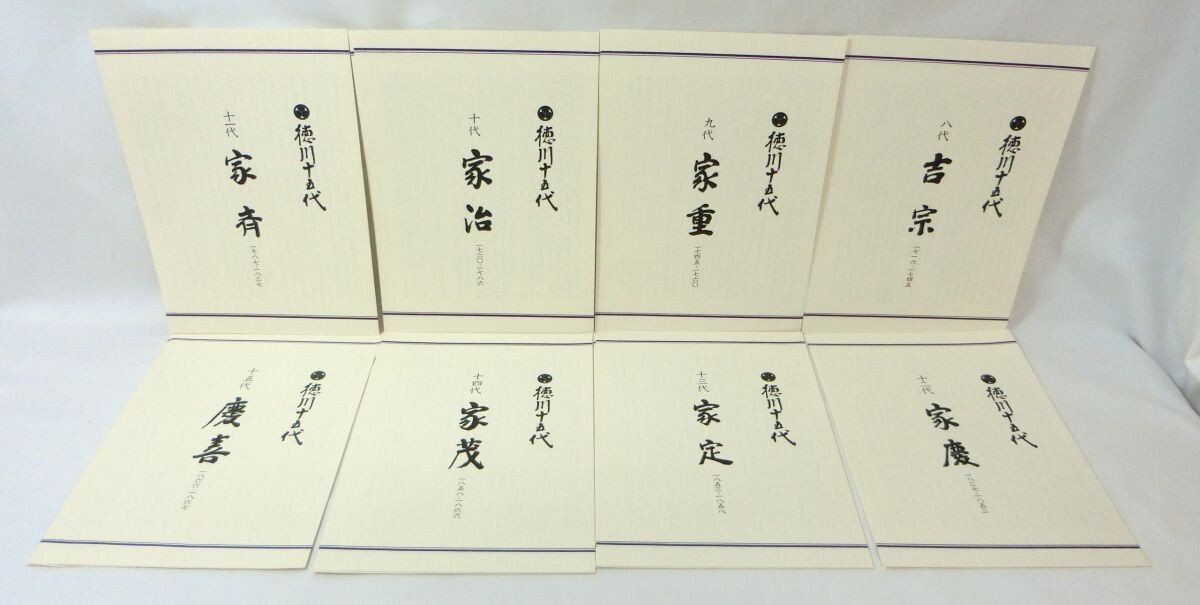 徳川十五代
八代
吉宗
一七一六-一七四五
徳川十五代
九代
家重
一七四五-一七六〇
徳川十五代
十代
家治
一七六〇-一七八六
徳川十五代
十一代
家斉
一七八七-一八三七
徳川十五代
十二代
家慶
一八三七-一八五三
徳川十五代
十三代
家定
一八五三-一八五八
徳川十五代
十四代
家茂
一八五八-一八六六
徳川十五代
十五代
慶喜
一八六六-一八六七